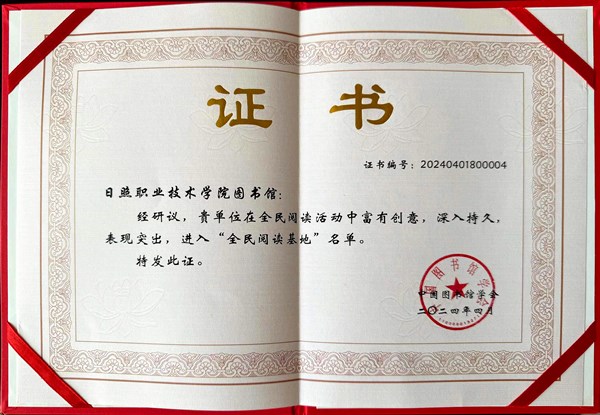 证书
证书编号：20240401800004
日照职业技术学院图书馆：
经研议，贵单位在全民阅读活动中富有创意，深入持久，
表现突出，进入“全民阅读基地”名单。
特发此证。
中国图书馆学会
二〇二四年四月